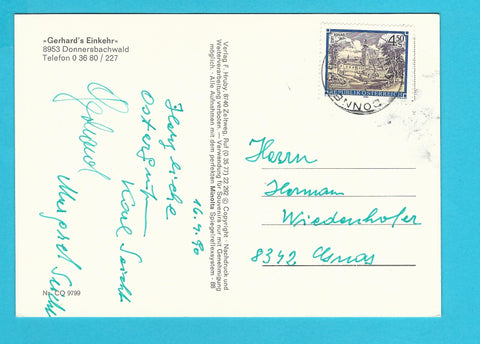 «Gerhard's Einkehr»
8953 Donnersbachwald
Telefon 0 36 80 / 227
Herzliche
Ostergrüße
Karl
Gerhard
Margret
16.4.90
Nr. CQ 9799
Verlag F. Hruby, 8740 Zeltweg, Ruf (0 35 77) 22 292 © Copyright - Nachdruck und
Weiterverarbeitung verboten. — Verwendung für Souvenirs nur mit Genehmigung
möglich. - Alle Aufnahmen mit dem perfekten Minolta Spiegelreflexsystem - 88
4.50
REPUBLIK ÖSTERREICH
DONN
Herrn
Hermann
Wiedenhofer
8342 Gnas